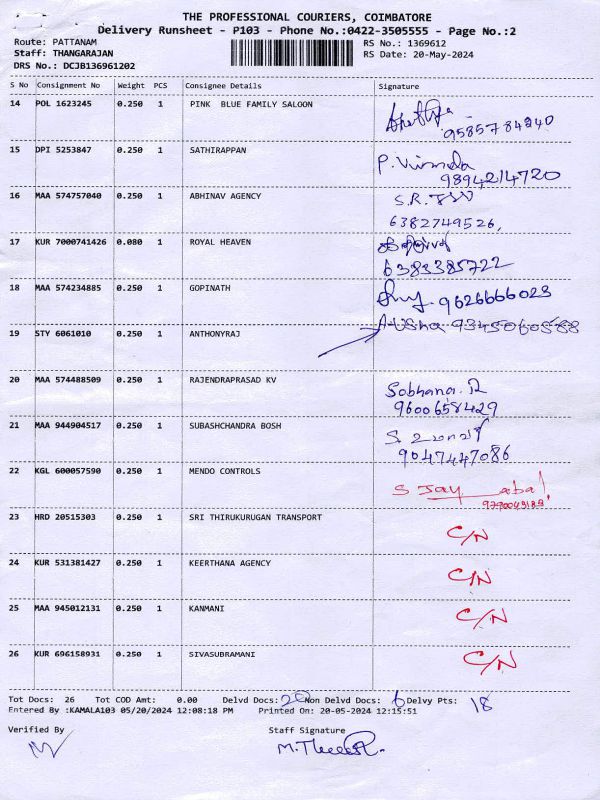 THE PROFESSIONAL COURIERS, COIMBATORE
Delivery Runsheet - P103 - Phone No.:0422-3505555 - Page No.:2
Route: PATTANAM RS No.: 1369612
Staff: THANGARAJAN RS Date: 20-May-2024
DRS No.: DCJB136961202
S No Consignment No Weight PCS Consignee Details Signature
14 POL 1623245 0.250 1 PINK BLUE FAMILY SALOON
9585784840
15 DPI 5253847 0.250 1 SATHIRAPPAN P. Virmala
9894214720
16 MAA 574757040 0.250 1 ABHINAV AGENCY S.R.
6382749526,
17 KUR 7000741426 0.080 1 ROYAL HEAVEN
6383385722
18 MAA 574234885 0.250 1 GOPINATH 9626666023
19 STY 6061010 0.250 1 ANTHONYRAJ A-Usha 9345060588
20 MAA 574488509 0.250 1 RAJENDRAPRASAD KV Sobhana. R
9600658429
21 MAA 944904517 0.250 1 SUBASHCHANDRA BOSH S.
9047447086
22 KGL 600057590 0.250 1 MENDO CONTROLS S Jay abal
23 HRD 20515303 0.250 1 SRI THIRUKURUGAN TRANSPORT C/N
24 KUR 531381427 0.250 1 KEERTHANA AGENCY C/N
25 MAA 945012131 0.250 1 KANMANI C/N
26 KUR 696158931 0.250 1 SIVASUBRAMANI C/N
Tot Docs: 26 Tot COD Amt: 0.00 Delvd Docs: 20 Non Delvd Docs: 6 Delvy Pts: 18
Entered By :KAMALA103 05/20/2024 12:08:18 PM Printed On: 20-05-2024 12:15:51
Verified By Staff Signature